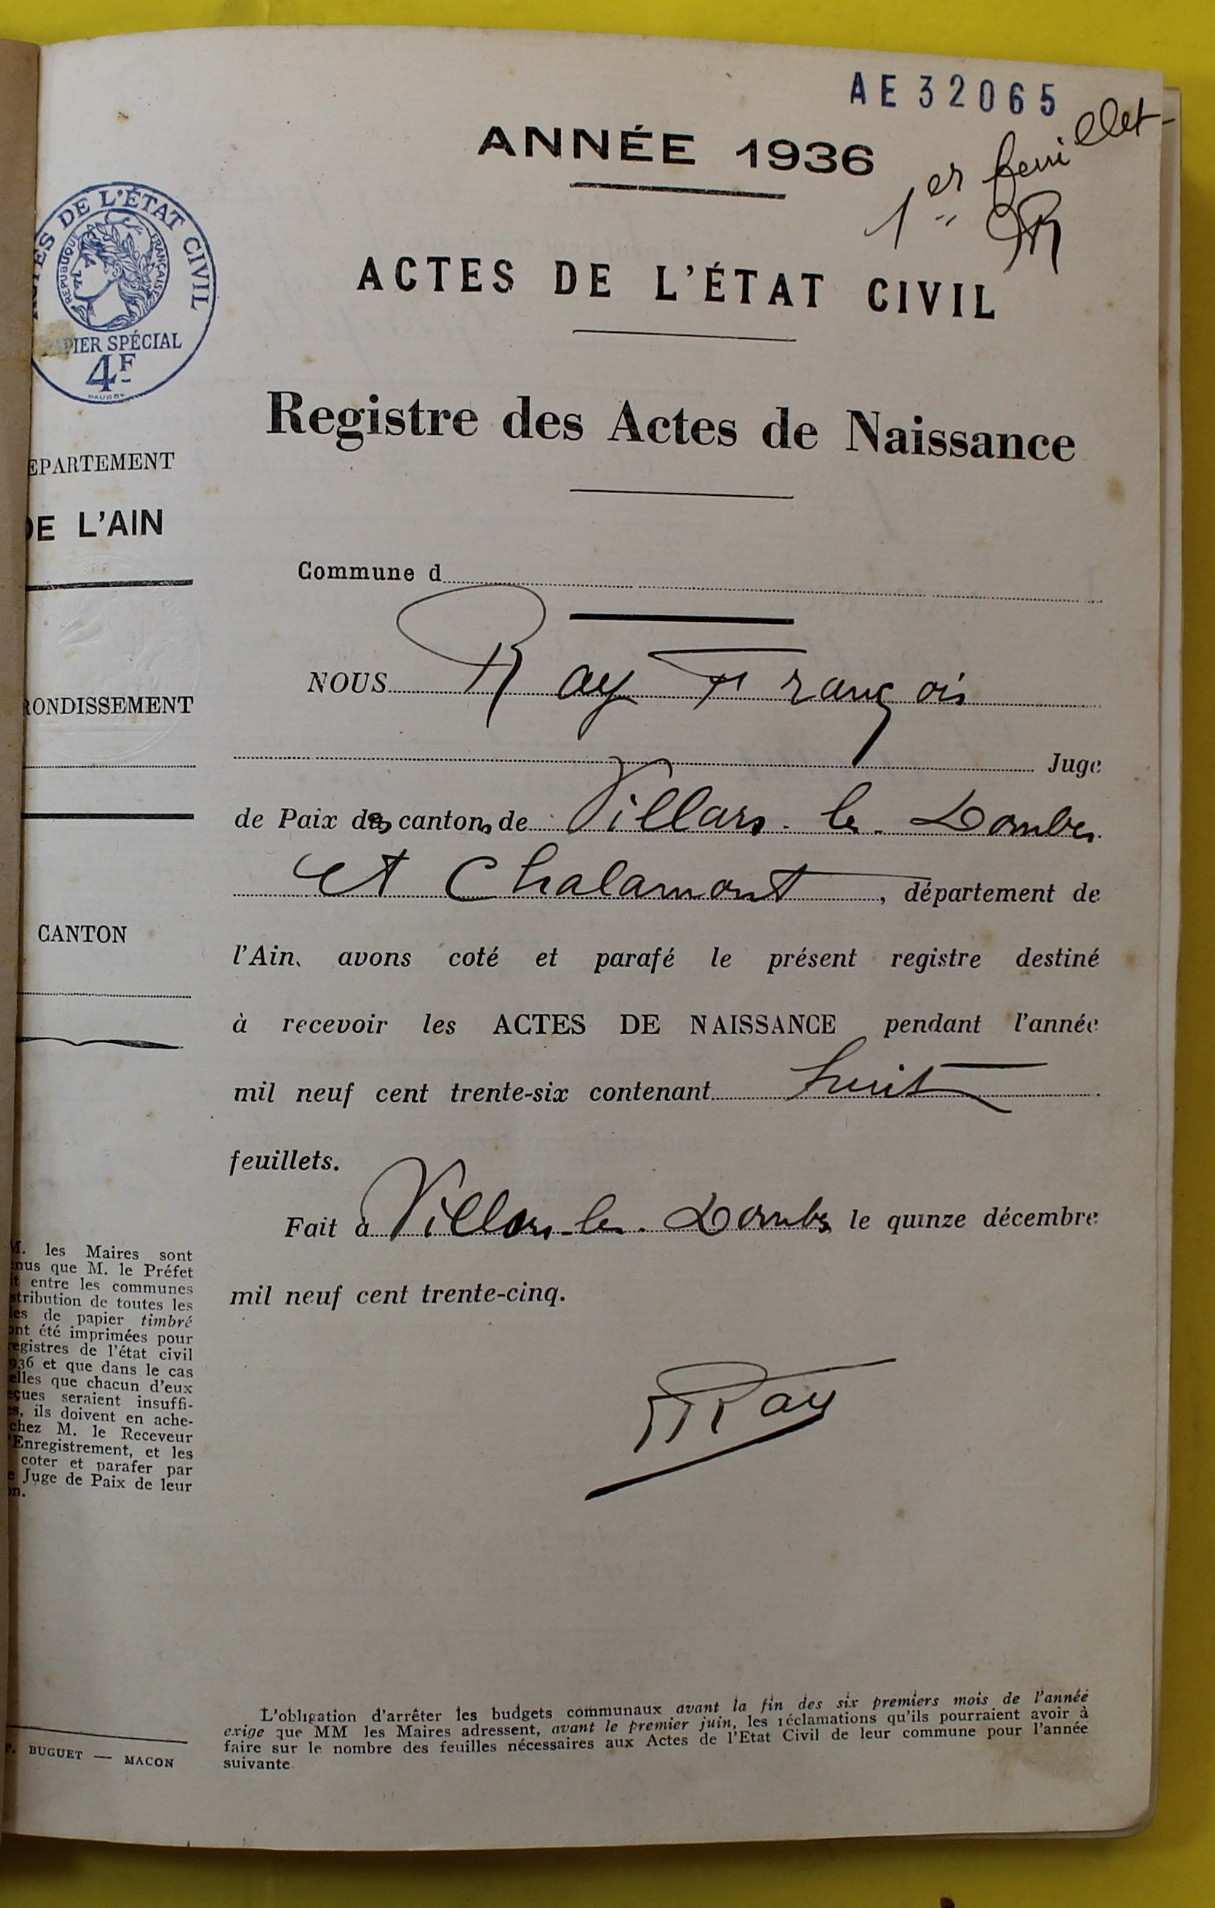 AE32065
ANNÉE 1936
1er feuillet
ACTES DE L'ÉTAT CIVIL
ACTES DE L'ÉTAT CIVIL
RÉPUBLIQUE FRANÇAISE
PAPIER SPÉCIAL
4F
Registre des Actes de Naissance
EPARTEMENT
DE L'AIN
RONDISSEMENT
CANTON
Commune d
NOUS Ray François
Juge
de Paix des cantons de Villars-les-Dombes
et Chalamont, département de
l'Ain, avons coté et parafé le présent registre destiné
à recevoir les ACTES DE NAISSANCE pendant l'année
mil neuf cent trente-six contenant huit
feuillets.
Fait à Villars-les-Dombes le quinze décembre
mil neuf cent trente-cinq.
Ray
M. les Maires sont
nus que M. le Préfet
it entre les communes
stribution de toutes les
les de papier timbré
ont été imprimées pour
egistres de l'état civil
936 et que dans le cas
elles que chacun d'eux
eçues seraient insuffi-
s, ils doivent en ache-
chez M. le Receveur
'Enregistrement, et les
coter et parafer par
e Juge de Paix de leur
on.
P. BUGUET — MACON
L'obligation d'arrêter les budgets communaux avant la fin des six premiers mois de l'année
exige que MM les Maires adressent, avant le premier juin, les réclamations qu'ils pourraient avoir à
faire sur le nombre des feuilles nécessaires aux Actes de l'Etat Civil de leur commune pour l'année
suivante